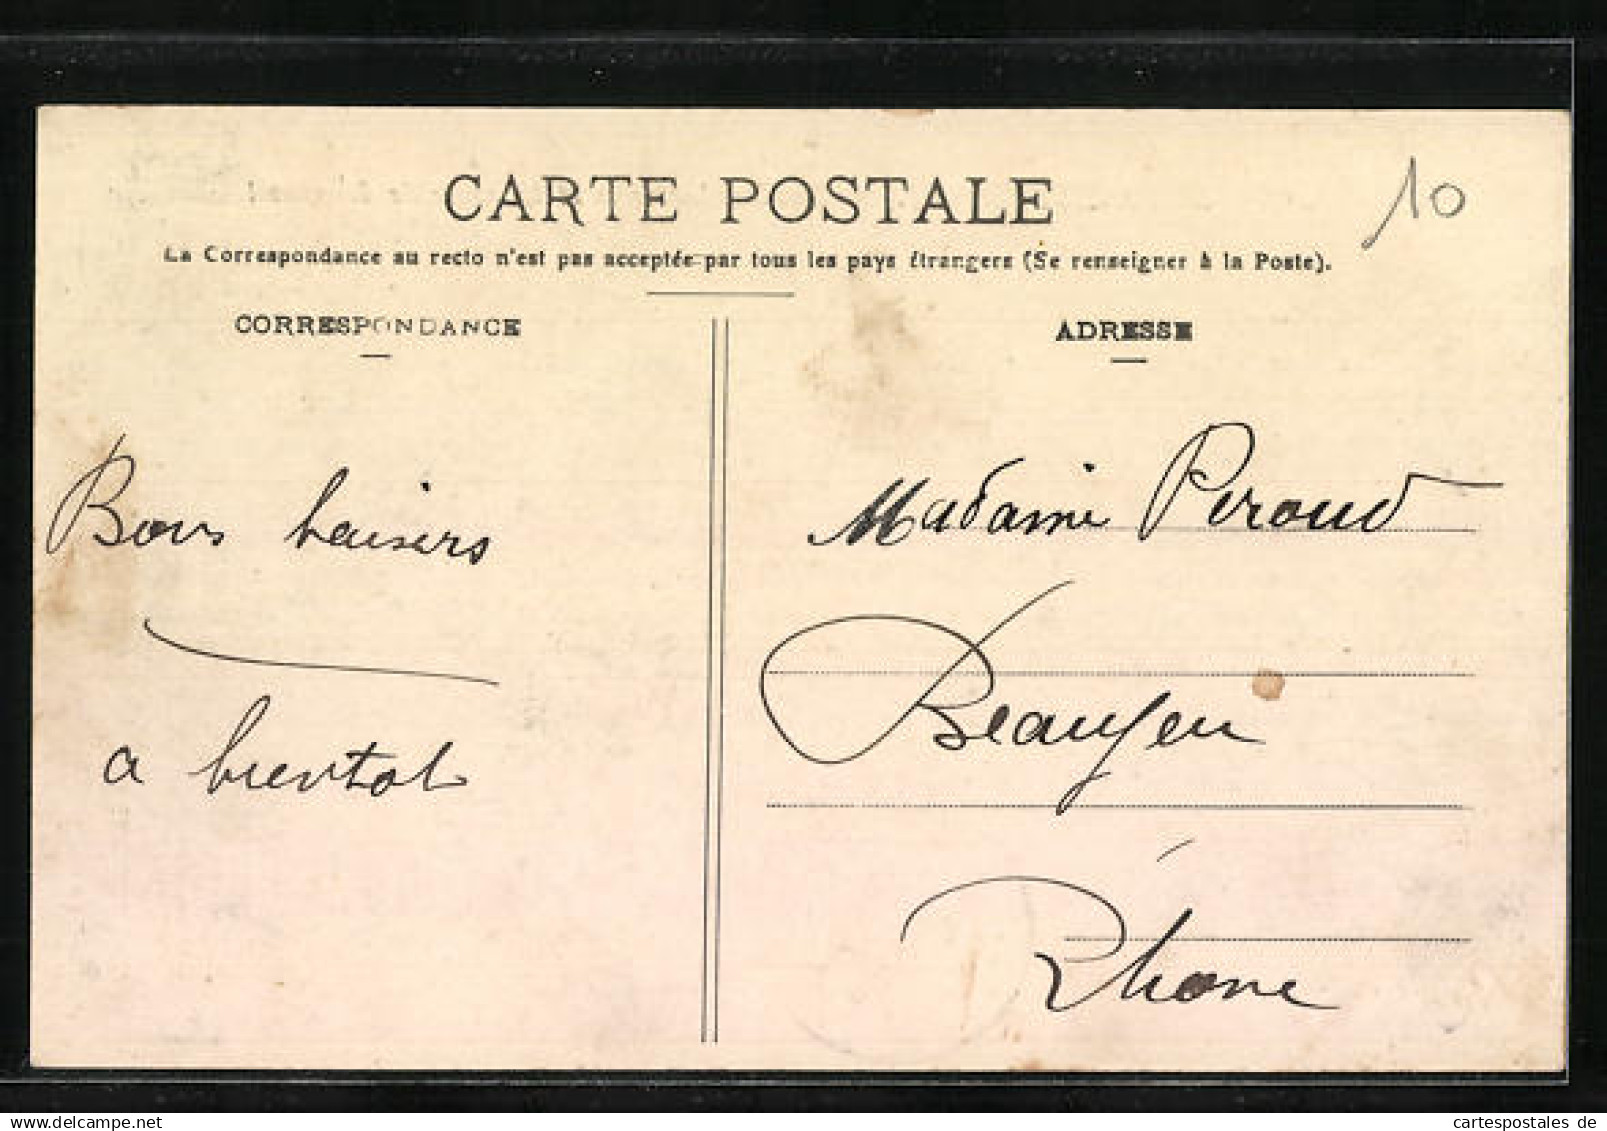 CARTE POSTALE
10
La Correspondance au recto n'est pas acceptée par tous les pays étrangers (Se renseigner à la Poste).
CORRESPONDANCE
ADRESSE
Bons baisers
a bientot
Madame Peroud
Beaujeu
Rhone
cartespostales de